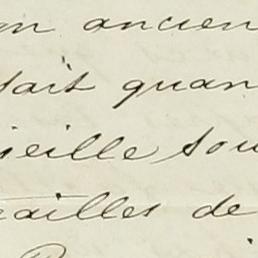 on ancien
fait quan
vieille sou
railles de